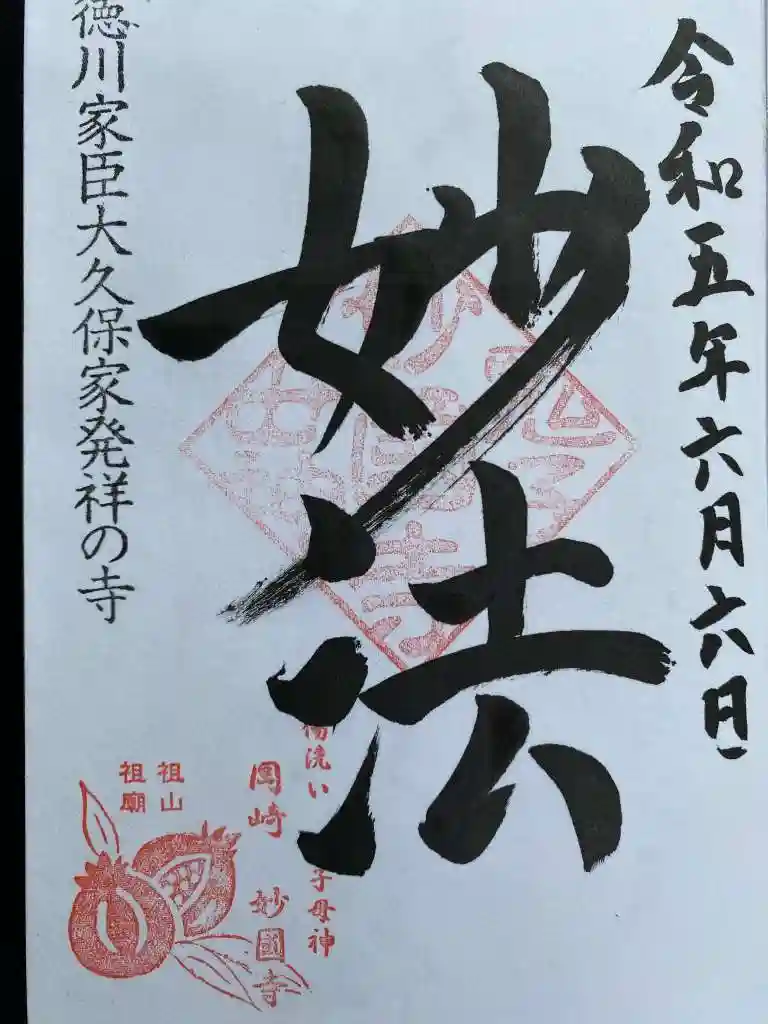 令和五年六月六日
妙法
徳川家臣大久保家発祥の寺
洗い
子母神
岡崎 妙國寺
祖山
祖廟